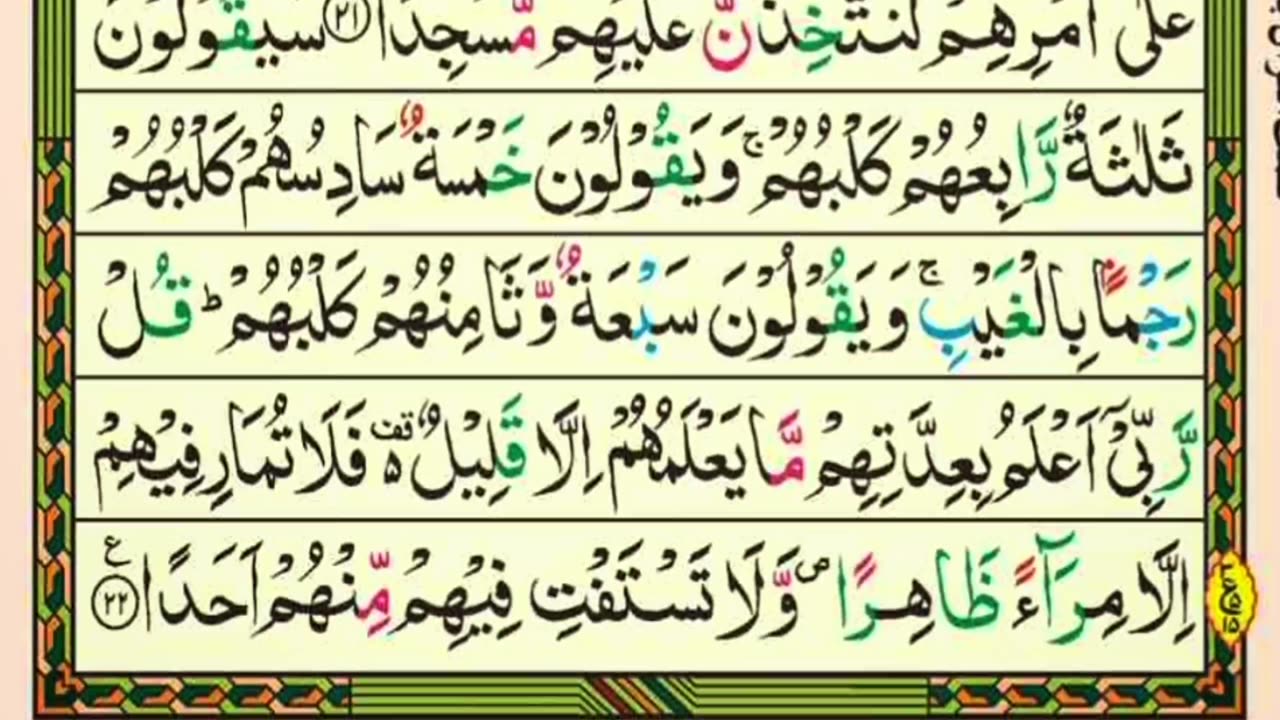 عَلٰٓى اَمْرِهِمْ لَنَتَّخِذَنَّ عَلَيْهِمْ مَّسْجِدًا ﴿۲۱﴾ سَيَقُوْلُوْنَ
ثَلٰثَةٌ رَّابِعُهُمْ كَلْبُهُمْ ۚ وَيَقُوْلُوْنَ خَمْسَةٌ سَادِسُهُمْ كَلْبُهُمْ
رَجْمًۢا بِالْغَيْبِ ۚ وَيَقُوْلُوْنَ سَبْعَةٌ وَّثَامِنُهُمْ كَلْبُهُمْ ؕ قُلْ
رَّبِّىْٓ اَعْلَمُ بِعِدَّتِهِمْ مَّا يَعْلَمُهُمْ اِلَّا قَلِيْلٌ ۵ قف فَلَا تُمَارِ فِيْهِمْ
اِلَّا مِرَآءً ظَاهِرًا ۖ وَّلَا تَسْتَفْتِ فِيْهِمْ مِّنْهُمْ اَحَدًا ﴿۲۲﴾ ع